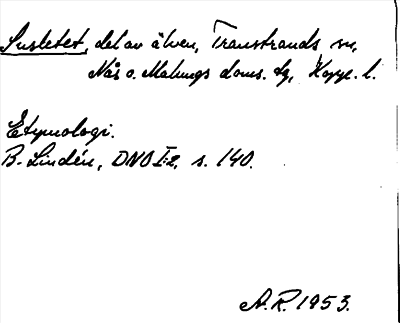 Susletet, del av älven, Transtrands sn,
Nås o. Malungs doms. tg, Kopp. l.
Etymologi.
B. Lindén, DNO I:2, s. 140.
A.R. 1953.